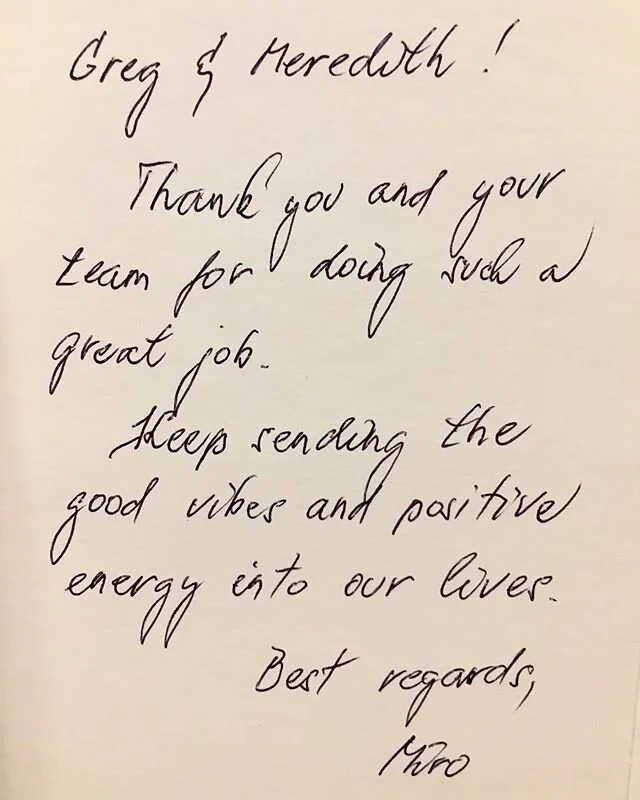 Greg & Meredith!
Thank you and your
team for doing such a
great job.
Keep sending the
good vibes and positive
energy into our lives.
Best regards,
Miro